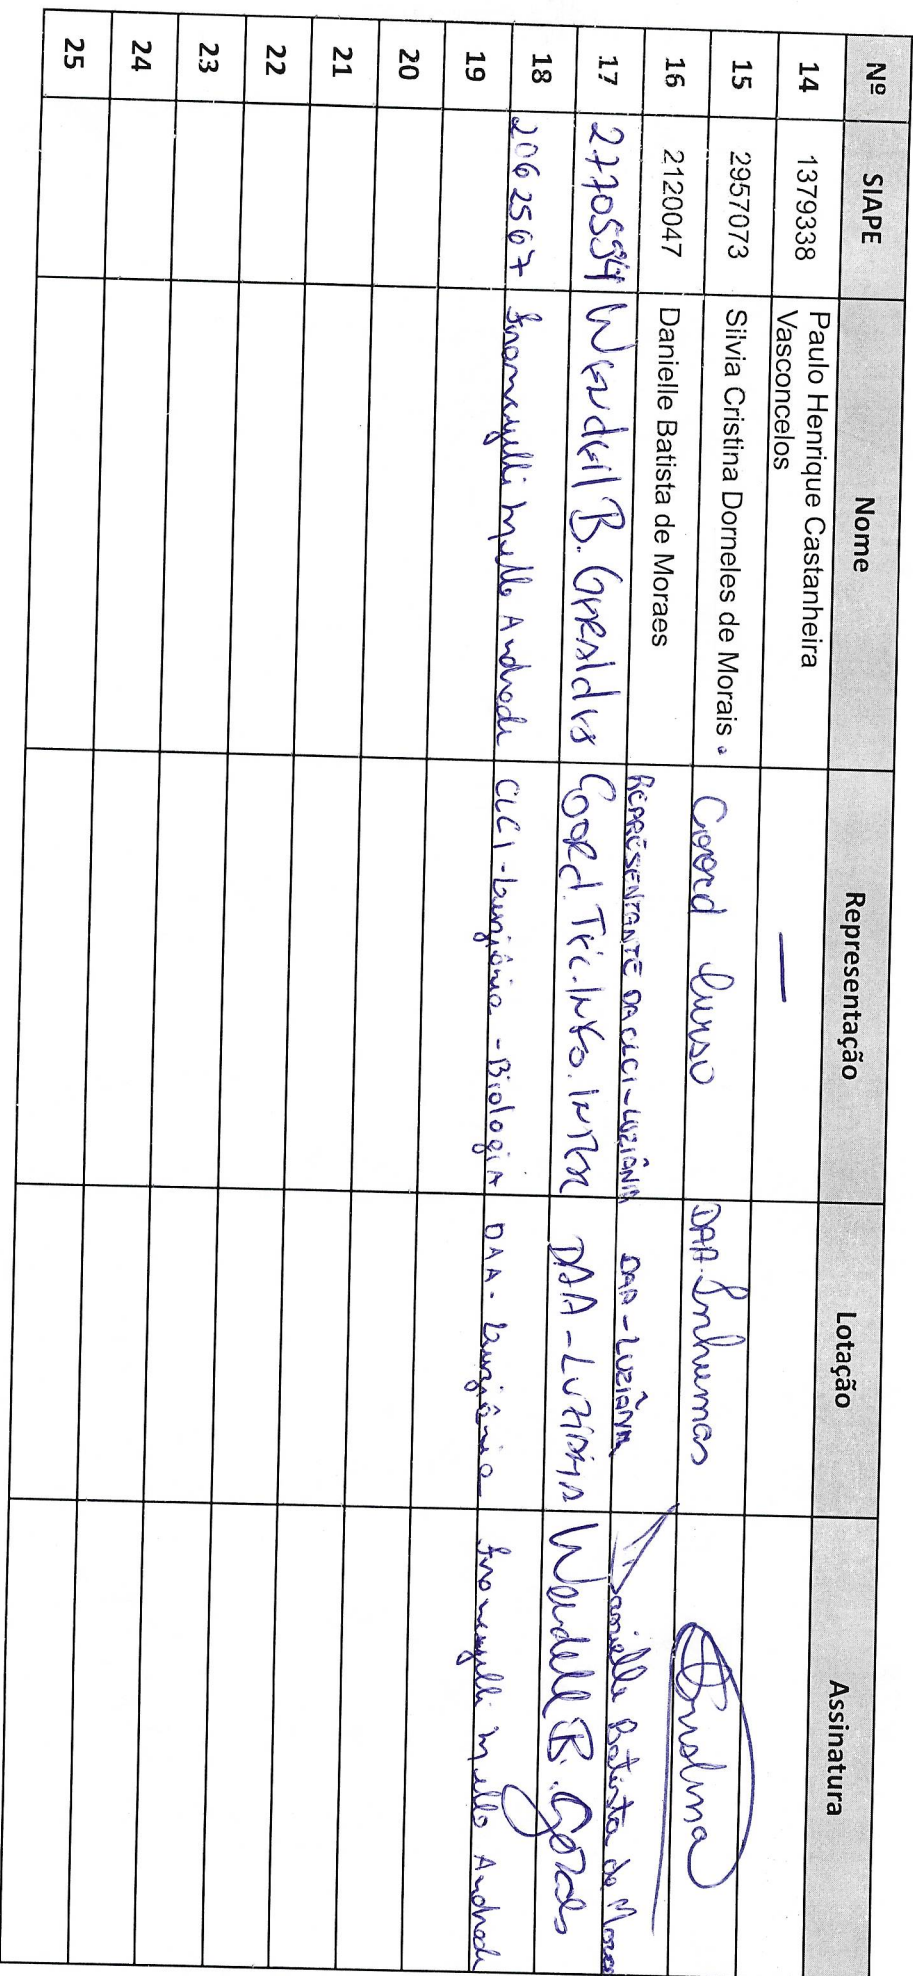 Nº SIAPE Nome Representação Lotação Assinatura
14 1379338 Paulo Henrique Castanheira
Vasconcelos —
15 2957073 Silvia Cristina Dorneles de Morais Coord Curso DAA-Inhumas
16 2120047 Danielle Batista de Moraes REPRESENTANTE DA CLCI-LUZIÂNIA DAA-LUZIÂNIA Danielle Batista de Moraes
17 2770554 Wendell B. Geraldes Coord. TEC. INFO. INTER DAA-LUZIÂNIA Wendell B. Geraldes
18 2062567 Mello Andrade CLCI-Luziânia-Biologia DAA-Luziânia Mello Andrade
19
20
21
22
23
24
25